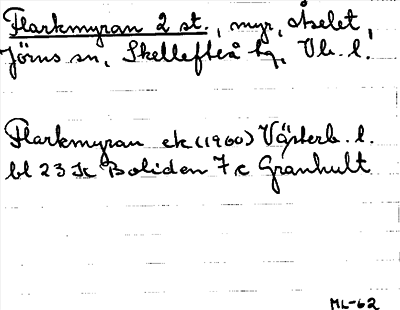 Flarkmyran 2 st., myr, Åselet,
Jörns sn, Skellefteå tg, Vb. l.
Flarkmyran ek (1960) Västerb. l.
bl 23 K Boliden 7 c Granhult
ML-62